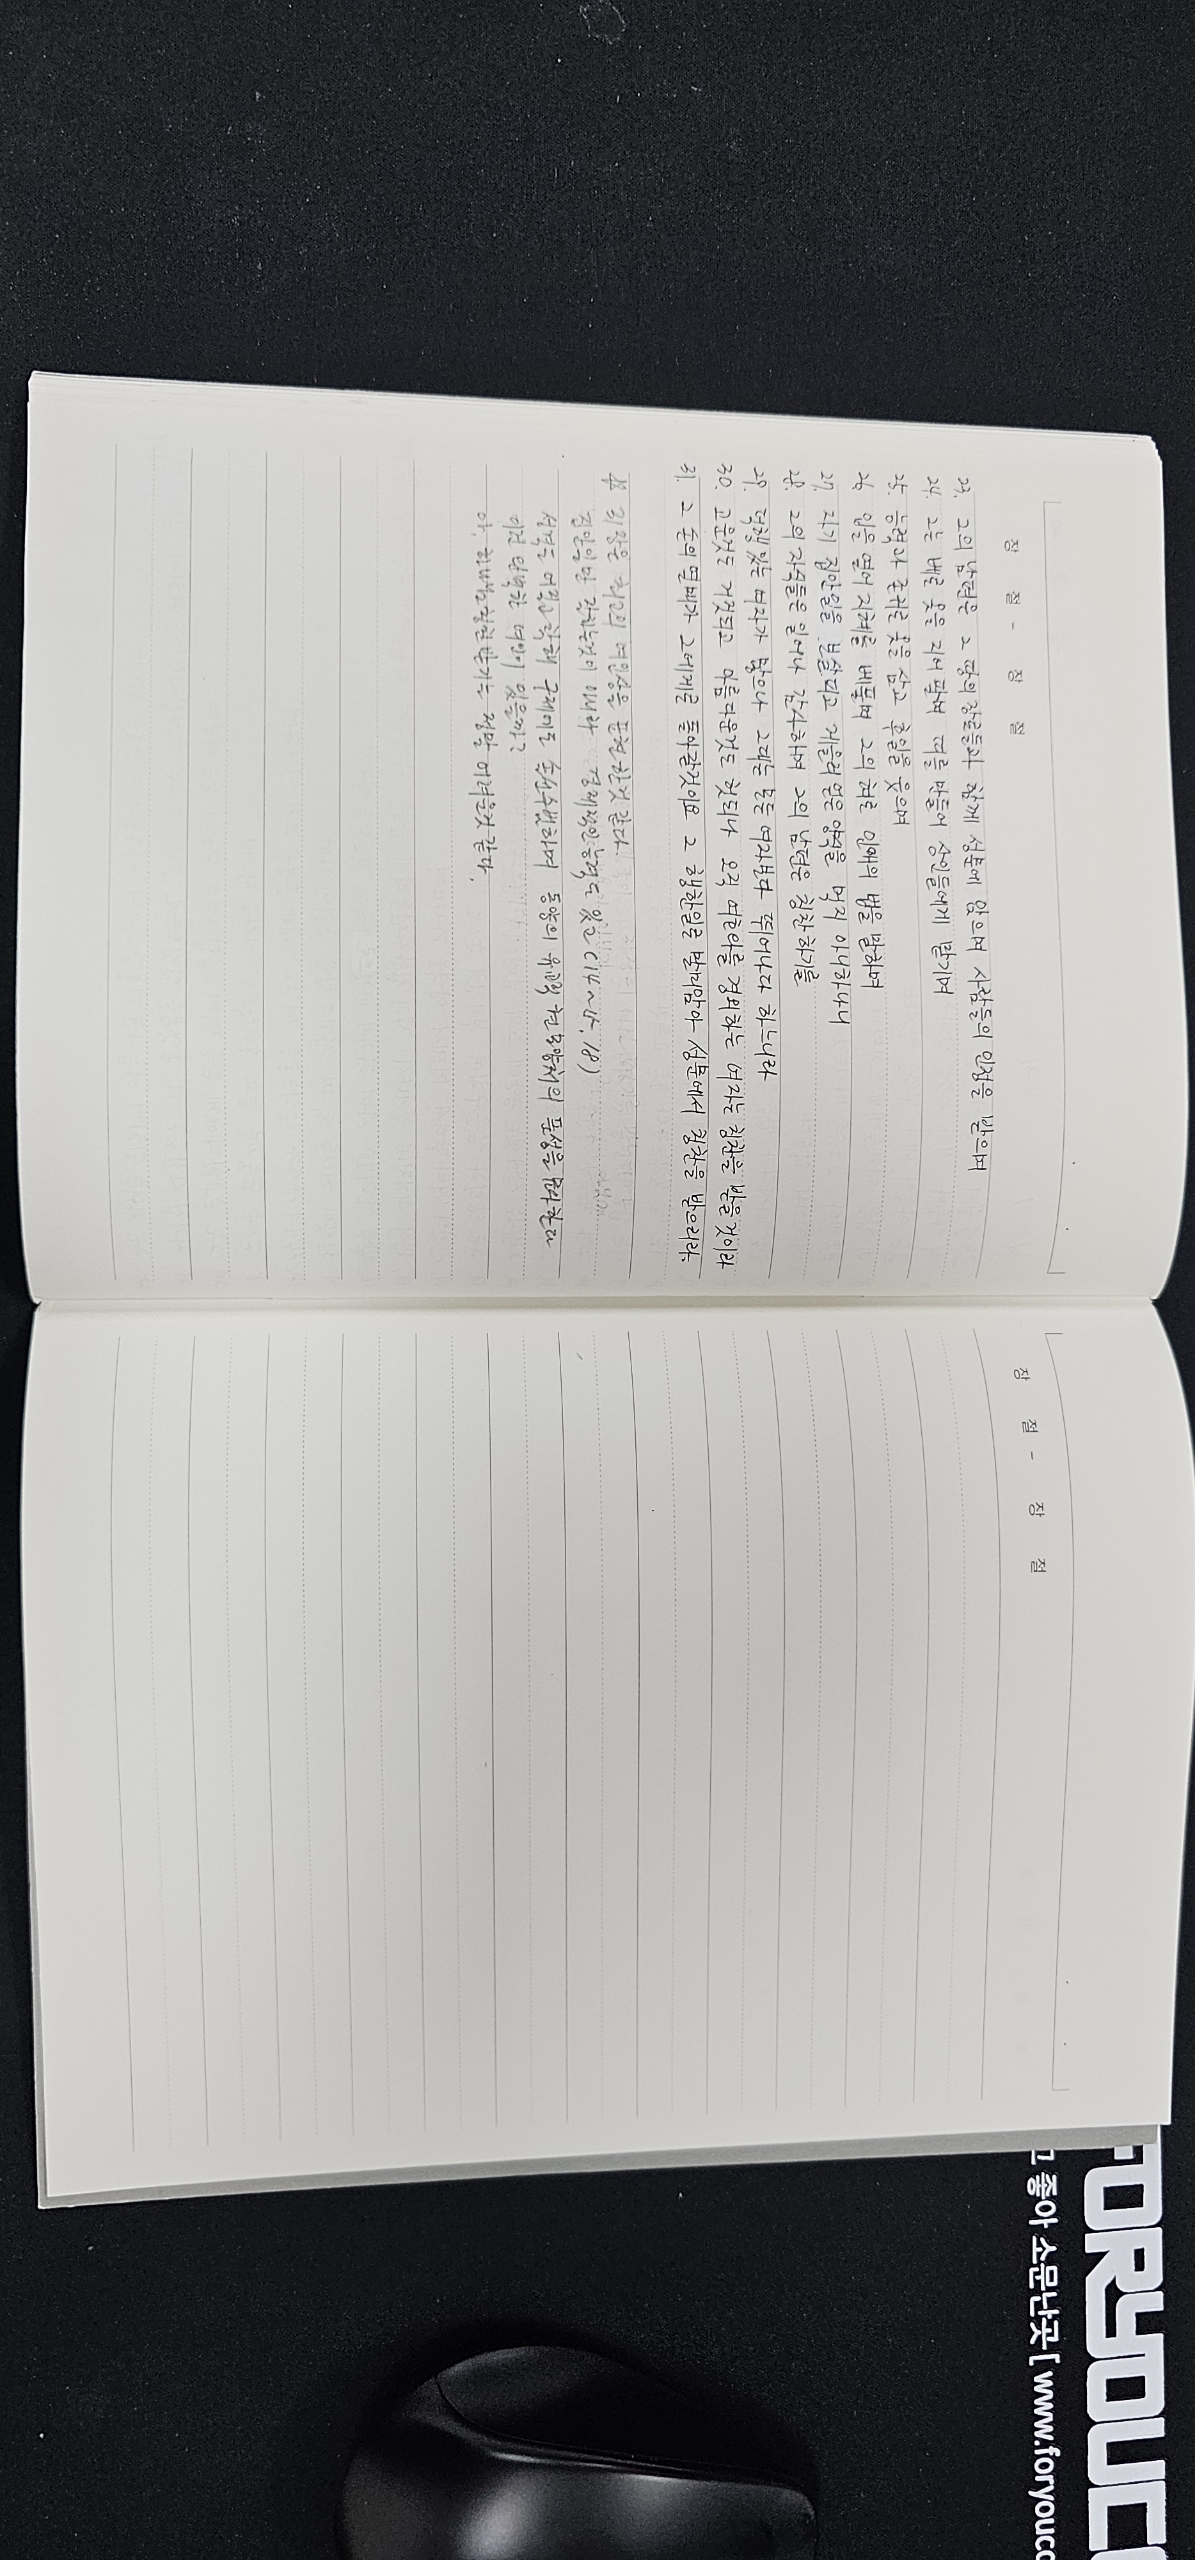 장 절 - 장 절
23. 그의 남편은 그 땅의 장로들과 함께 성문에 앉으며 사람들의 인정을 받으며
24. 그는 베로 옷을 지어 팔며 띠를 만들어 상인들에게 맡기며
25. 능력과 존귀로 옷을 삼고 후일을 웃으며
26. 입을 열어 지혜를 베풀며 그의 혀로 인애의 법을 말하며
27. 자기 집안일을 보살피고 게을리 얻은 양식을 먹지 아니하나니
28. 그의 자식들은 일어나 감사하며 그의 남편은 칭찬하기를
29. 덕행 있는 여자가 많으나 그대는 모든 여자보다 뛰어나다 하느니라
30. 고운것도 거짓되고 아름다운것도 헛되나 오직 여호와를 경외하는 여자는 칭찬을 받을 것이라
31. 그 손의 열매가 그에게로 돌아갈것이요 그 행한일로 말미암아 성문에서 칭찬을 받으리라.
31장은 여인상을 것 같다.
집안일만 하는것이 아니라 경제적인 능력도 있고 (14~15, 18)
여인
이런 완벽한 여인이 있을까?
정말 어려운것 같다.
장 절 - 장 절
FORYOUC
고 좋아 소문난곳 [ www.foryouco